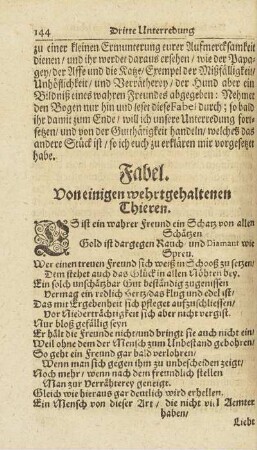 144 Dritte Unterredung
zu einer kleinen Ermunterung eurer Aufmercksamkeit
dienen / und ihr werdet daraus ersehen / wie der Papa-
gey / der Affe und die Katze / Exempel der Mißfälligkeit /
Unhöfligkeit / und Verrätherey / der Hund aber ein
Bildniß eines wahren Freundes abgegeben: Nehmet
den Bogen nur hin und leset diese Fabel durch; so bald
ihr damit zum Ende / will ich unsere Unterredung fort-
setzen / und von der Guthätigkeit handeln / welches das
andere Stück ist / so ich euch zu erklären mir vorgesetzt
habe.
Fabel.
Von einigen wehrtgehaltenen
Thieren.
ES ist ein wahrer Freund ein Schatz von allen
Schätzen
Gold ist dargegen Rauch und Diamant wie
Spreu.
Wer einen treuen Freund sich weiß in Schooß zu setzen /
Dem stehet auch das Glück in allen Nöhten bey.
Ein solch unschätzbar Gut beständig zugeniessen
Vermag ein redlich Hertz / das klug und edel ist /
Das mit Ergebenheit sich pfleget aufzuschliessen /
Vor Niederträchtigkeit sich aber nicht vergist.
Nur bloß gefällig seyn
Er hält die Freunde nicht / und bringt sie auch nicht ein /
Weil ohne dem der Mensch zum Unbestand gebohren /
So geht ein Freund gar bald verlohren /
Wenn man sich gegen ihm zu unbescheiden zeigt /
Noch mehr / wenn nach dem freundlich stellen
Man zur Verrähterey geneigt.
Gleich wie hieraus gar deutlich wird erhellen.
Ein Mensch von dieser Art / die nicht viel Aemter
haben /
Liebt